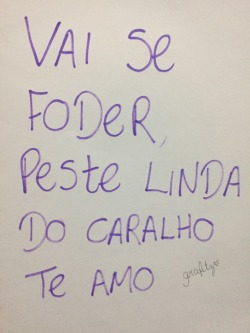 VAI SE
FODER,
PESTE LINDA
DO CARALHO
TE AMO